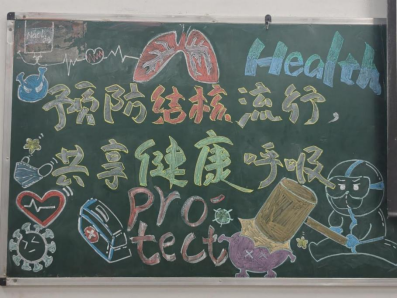 Health
预防结核流行，
共享健康呼吸
Pro-
tect